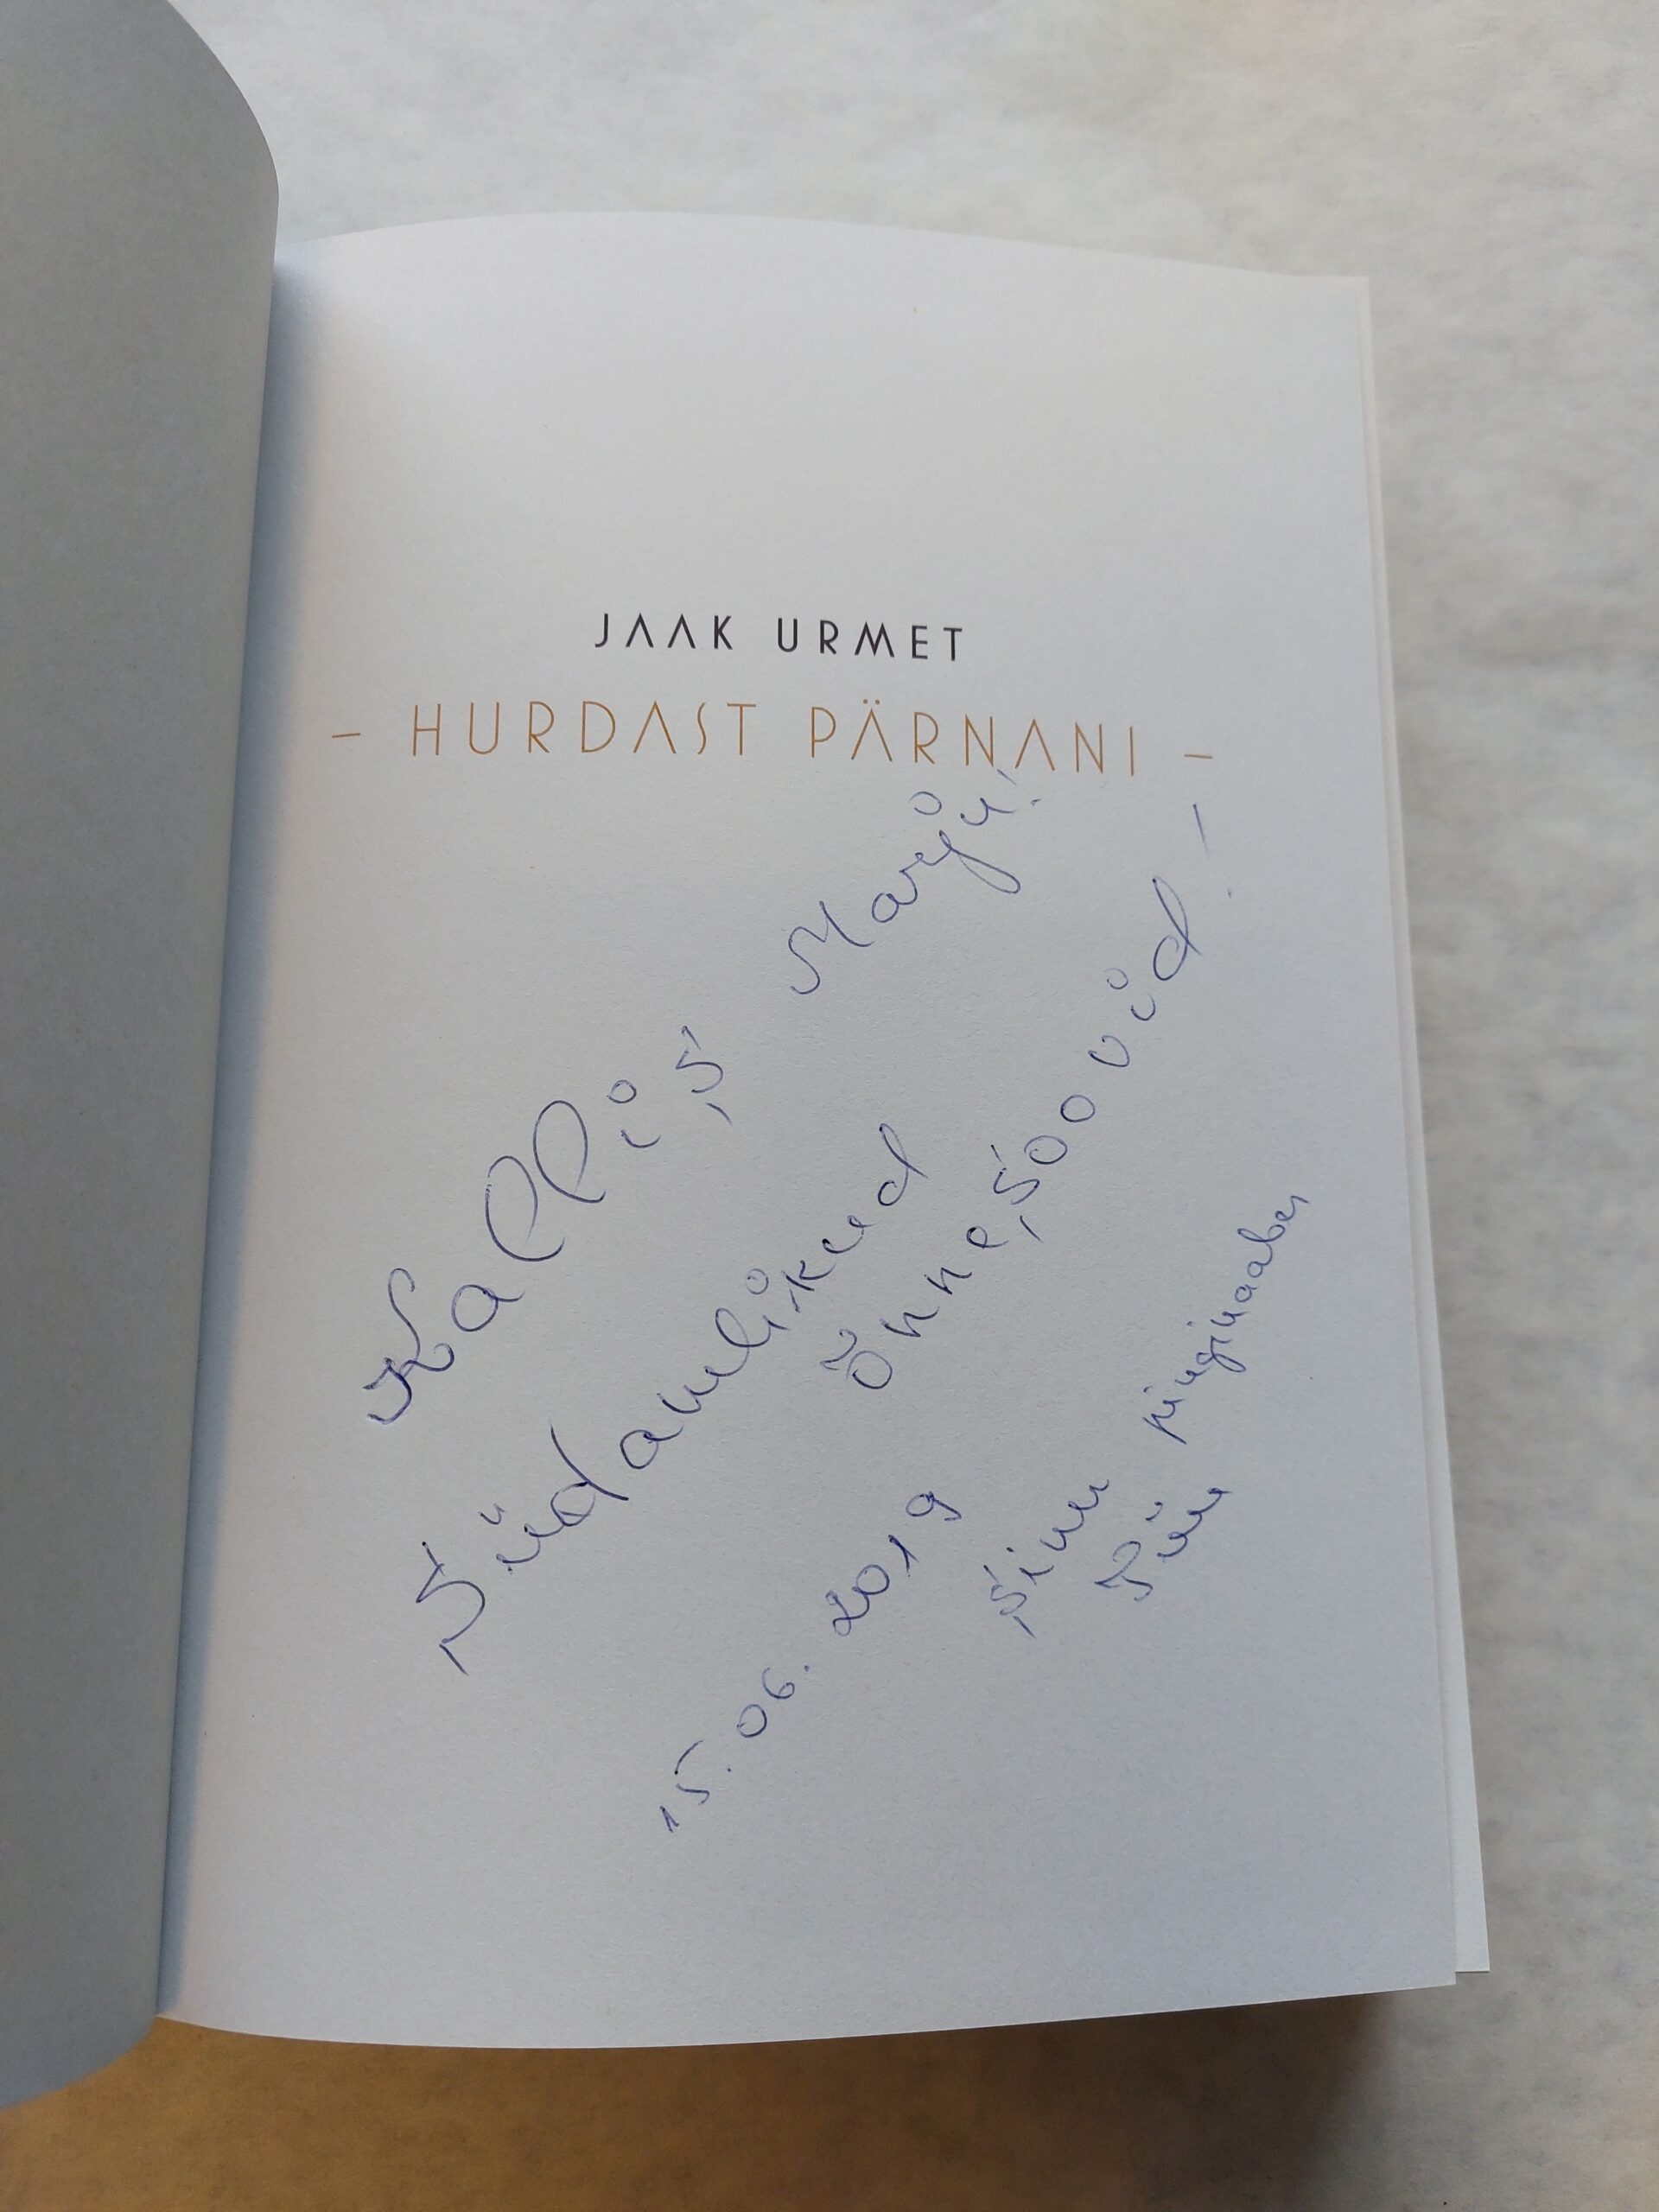 JAAK URMET
– HURDAST PÄRNANI –
Kallis Marju!
Südamlikud
õnnesoovid!
15.06.2019
Sinu pinginaaber
Piia